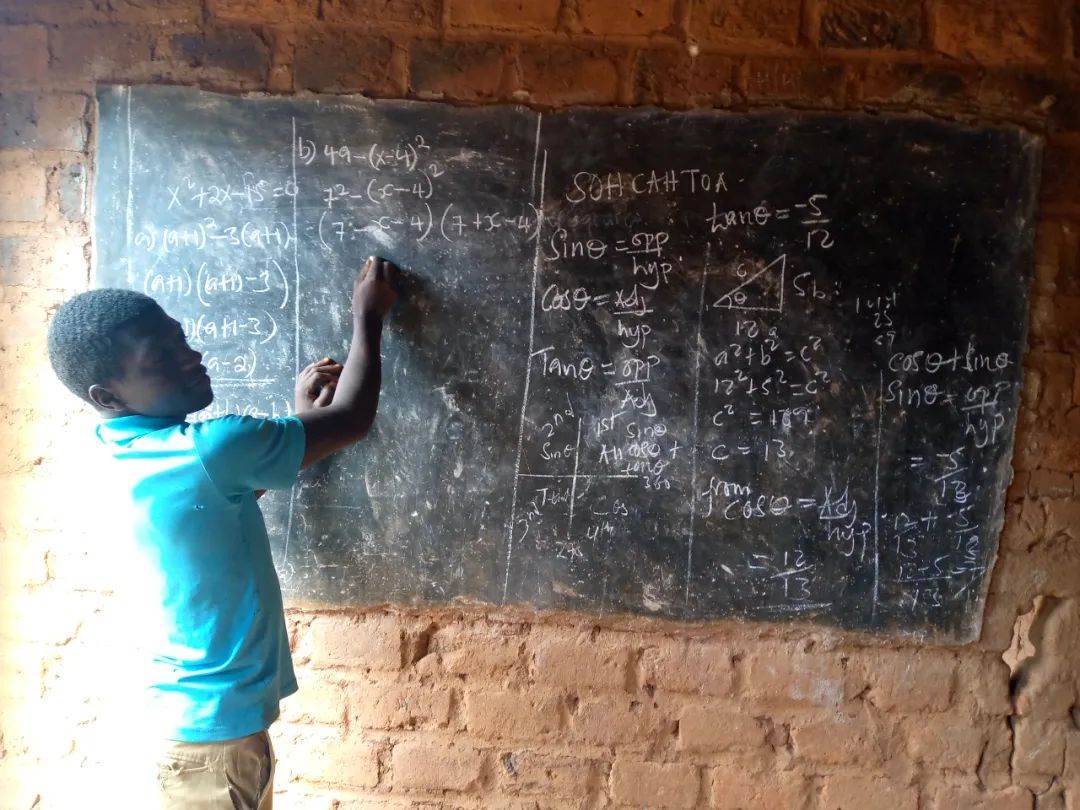 x²+2x-15=0
a) (a+1)²-3(a+1)
(a+1)(a+1-3)
)(a+1-3)
a-2)
b) 49-(x-4)²
7²-(x-4)²
=(7-x-4)(7+x-4)
SOH CAH TOA
Sinθ = opp/hyp
Cosθ = Adj/hyp
Tanθ = opp/Adj
2nd
Sinθ
1st
Sinθ
All cosθ +
tanθ
360
3rd
Cos
4th
tanθ = -5/12
c
θ
5 b
12 a
a²+b²=c²
12²+5²=c²
c² = 169
c = 13
from
cosθ = Adj/hyp
= 12/13
cosθ + sinθ
Sinθ = opp/hyp
= -5/13
12/13 + -5/13
12-5/13